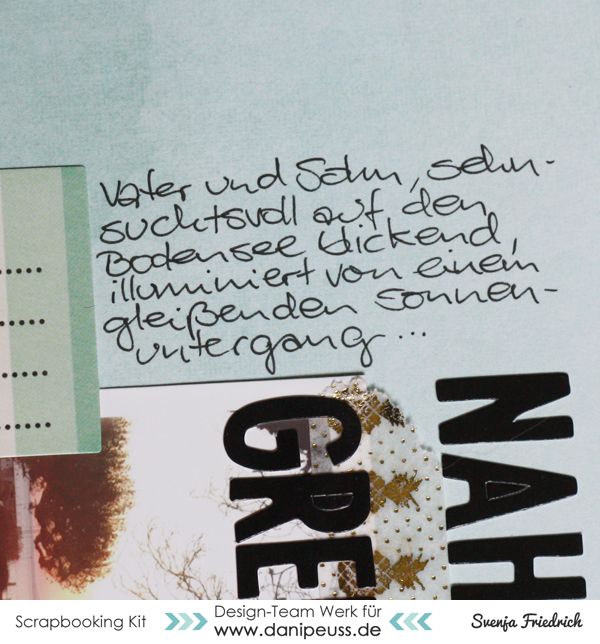 Vater und Sohn, sehn-
suchtsvoll auf den
Bodensee blickend,
illuminiert von einem
gleißenden Sonnen-
untergang...
NAH
GRE
Scrapbooking Kit
Design-Team Werk für
www.danipeuss.de
Svenja Friedrich